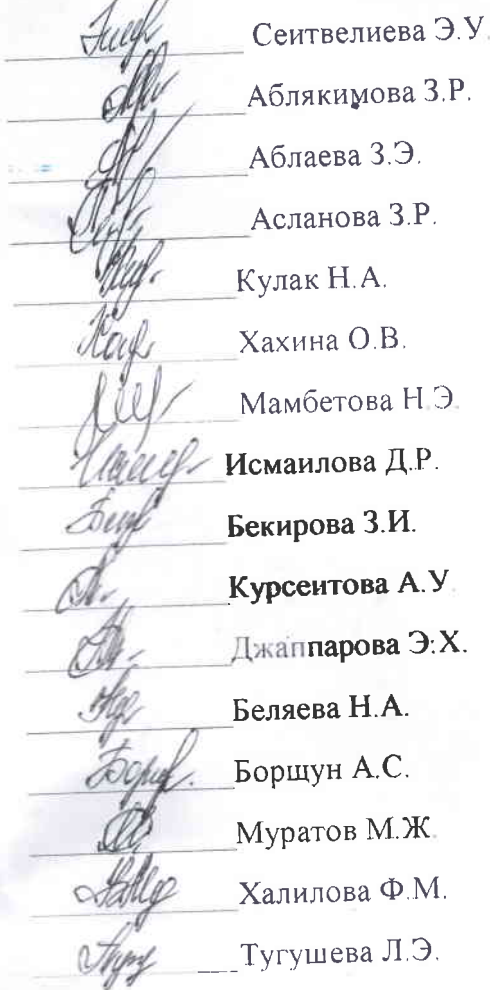 Сеитвелиева Э.У.
Аблякимова З.Р.
Аблаева З.Э.
Асланова З.Р.
Кулак Н.А.
Хахина О.В.
Мамбетова Н.Э.
Исмаилова Д.Р.
Бекирова З.И.
Курсеитова А.У.
Джаппарова Э.Х.
Беляева Н.А.
Борщун А.С.
Муратов М.Ж.
Халилова Ф.М.
Тугушева Л.Э.